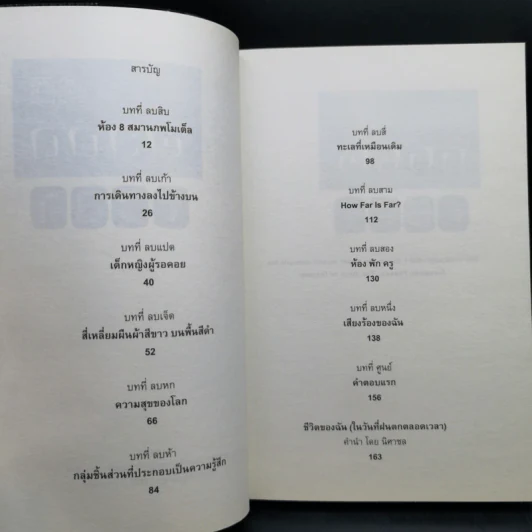 สารบัญ
บทที่ ลบสิบ
ห้อง 8 สมานภพโมเต็ล
12
บทที่ ลบเก้า
การเดินทางลงไปข้างบน
26
บทที่ ลบแปด
เด็กหญิงผู้รอคอย
40
บทที่ ลบเจ็ด
สี่เหลี่ยมผืนผ้าสีขาว บนพื้นสีดำ
52
บทที่ ลบหก
ความสุขของโลก
66
บทที่ ลบห้า
กลุ่มชิ้นส่วนที่ประกอบเป็นความรู้สึก
84
บทที่ ลบสี่
ทะเลที่เหมือนเดิม
98
บทที่ ลบสาม
How Far Is Far?
112
บทที่ ลบสอง
ห้อง พัก ครู
130
บทที่ ลบหนึ่ง
เสียงร้องของฉัน
138
บทที่ ศูนย์
คำตอบแรก
156
ชีวิตของฉัน (ในวันที่ฝนตกตลอดเวลา)
คำนำ โดย นิศาชล
163